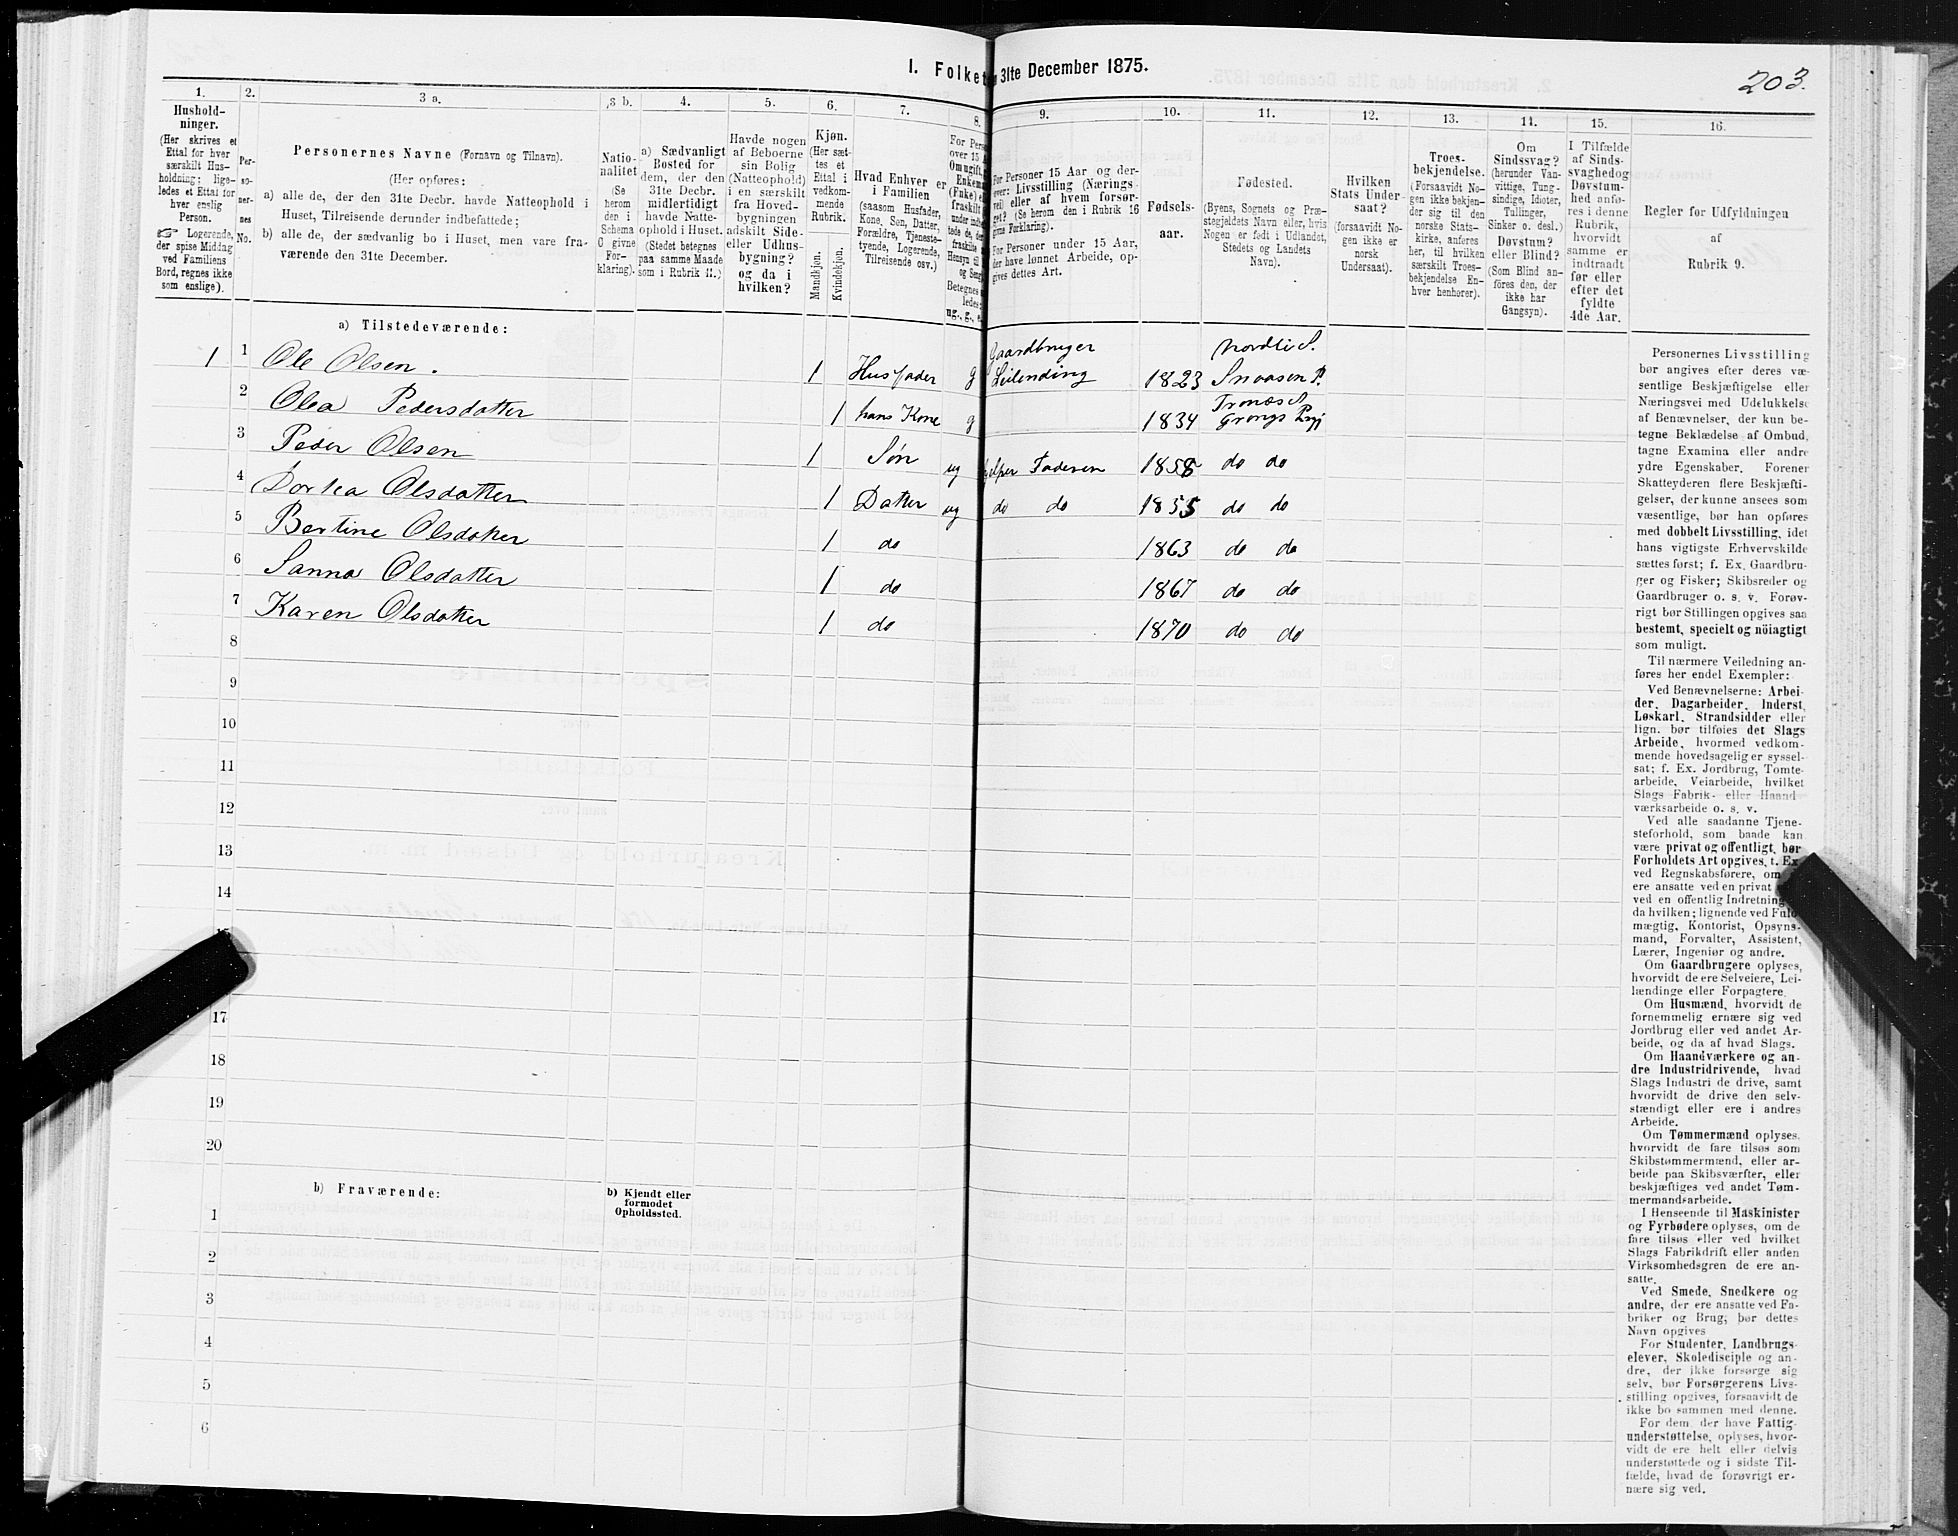 I. Folket 31te December 1875.
203.
1.
Hushold-
ninger.
(Her skrives et
Ettal for hver
særskilt Hus-
holdning; lige-
ledes et Ettal for
hver enslig
Person.
☞ Logerende,
der spise Middag
ved Familiens
Bord, regnes ikke
som enslige).
2.
Per-
so-
ner-
nes
No.
3 a.
Personernes Navne (Fornavn og Tilnavn).
(Her opføres:
a) alle de, der den 31te Decbr. havde Natteophold i
Huset, Tilreisende derunder indbefattede;
b) alle de, der sædvanlig bo i Huset, men vare fra-
værende den 31te December.
3 b.
Natio-
nalitet
(Se
herom
den i
Schema
C givne
For-
klaring).
4.
a) Sædvanligt
Bosted for
dem, der den
31te Decbr.
midlertidigt
havde Natte-
ophold i Huset.
(Stedet betegnes
paa samme Maade
som i Rubrik 11.)
5.
Havde nogen
af Beboerne
sin Bolig
(Natteophold)
i en særskilt
fra Hoved-
bygningen
adskilt Side-
eller Udhus-
bygning?
og da i
hvilken?
6.
Kjøn.
(Her sæt-
tes et
Ettal i
vedkom-
mende
Rubrik.
Mandkjøn.
Kvindekjøn.
7.
Hvad Enhver er
i Familien
(saasom Husfader,
Kone, Søn, Datter,
Forældre, Tjeneste-
tyende, Logerende,
Tilreisende osv.)
8.
For Pers
over 15 A
Om ugift,
Enkem
(Fake) e
fraskilt
Betegnes
ledes:
ug., g., e.
9.
For Personer 15 Aar og der-
over: Livsstilling (Nærings-
vei) eller af hvem forsør-
get? (Se herom den i Rubrik 16
givne Forklaring).
For Personer under 15 Aar,
der have lønnet Arbeide, op-
gives dettes Art.
10.
Fødsels-
aar.
11.
Fødested.
(Byens, Sognets og Præ-
stegjeldets Navn eller, hvis
Nogen er født i Udlandet,
Stedets og Landets
Navn).
12.
Hvilken
Stats Under-
saat?
(forsaavidt No-
gen ikke er
norsk
Undersaat).
13.
Troes-
bekjendelse.
(Forsaavidt No-
gen ikke bekjen-
der sig til den
norske Stats-
kirke, anføres
her, til hvilken
særskilt Troes-
bekjendelse En-
hver henhører).
14.
Om
Sindssvag?
(herunder Van-
vittige, Tung-
sindige, Idioter,
Tullinger,
Sinker o. desl.)
Døvstum?
eller Blind?
(Som Blind an-
føres den, der
ikke har
Gangsyn).
15.
I Tilfælde
af Sinds-
svaghed og
Døvstum-
hed anfø-
res i denne
Rubrik,
hvorvidt
samme er
indtraadt
før eller
efter det
fyldte
4de Aar.
16.
Regler for Udfyldningen
af
Rubrik 9.
a) Tilstedeværende:
1 1 Ole Olsen. 1 Husfader g Gaardbruger Leilending 1823 Nordli S. Snaasen P.
2 Olea Pedersdatter 1 hans Kone g 1834 Tronæs S Grongs Prgj
3 Peder Olsen 1 Søn ug hjelper Faderen 1858 do do
4 Dortea Olsdatter 1 Datter ug do do 1855 do do
5 Bertine Olsdatter 1 do 1863 do do
6 Sanna Olsdatter 1 do 1867 do do
7 Karen Olsdatter 1 do 1870 do do
8
9
10
11
12
13
14
17
18
19
20
b) Fraværende:
b) Kjendt eller
formodet
Opholdssted.
1
2
3
4
5
6
Personernes Livsstilling
bør angives efter deres væ-
sentlige Beskjæftigelse eller
Næringsvei med Udelukkelse
af Benævnelser, der kun be-
tegne Beklædelse af Ombud,
tagne Examina eller andre
ydre Egenskaber. Forener
Skatteyderen flere Beskjæfti-
gelser, der kunne ansees som
væsentlige, bør han opføres
med dobbelt Livsstilling, idet
hans vigtigste Erhvervskilde
sættes først; f. Ex. Gaardbru-
ger og Fisker; Skibsreder og
Gaardbruger o. s. v. Forøv-
rigt bør Stillingen opgives saa
bestemt, specielt og nöiagtigt
som muligt.
Til nærmere Veiledning an-
føres her endel Exempler:
Ved Benævnelserne: Arbei-
der, Dagarbeider, Inderst,
Løskarl, Strandsidder eller
lign. bør tilføies det Slags
Arbeide, hvormed vedkom-
mende hovedsagelig er syssel-
sat; f. Ex. Jordbrug, Tomte-
arbeide, Veiarbeide, hvilket
Slags Fabrik- eller Haand
værksarbeide o. s. v.
Ved alle saadanne Tjene-
steforhold, som baade kan
være privat og offentligt, bør
Forholdets Art opgives, t. Ex
ved Regnskabsførere, om
ere ansatte ved en privat
ved en offentlig Indretning
da hvilken; lignende ved Fuld-
mægtig, Kontorist, Opsyns-
mand, Forvalter, Assistent,
Lærer, Ingeniør og andre.
Om Gaardbrugere oplyses,
hvorvidt de ere Selveiere, Lei-
lændinge eller Forpagtere.
Om Husmænd, hvorvidt de
fornemmelig ernære sig ved
Jordbrug eller ved andet Ar-
beide, og da af hvad Slags.
Om Haandværkere og an-
dre Industridrivende, hvad
Slags Industri de drive, samt
hvorvidt de drive den selv-
stændigt eller ere i andres
Arbeide.
Om Tømmermænd oplyses,
hvorvidt de fare tilsøs som
Skibstømmermænd, eller ar-
beide paa Skibsværfter, eller
beskjæftiges ved andet Tøm-
mermandsarbeide.
I Henseende til Maskinister
og Fyrbødere oplyses, om de
fare tilsøs eller ved hvilket
Slags Fabrikdrift eller anden
Virksomhedsgren de ere an-
satte.
Ved Smede, Snedkere og
andre, der ere ansatte ved Fa-
briker og Brug, bør dettes
Navn opgives
For Studenter, Landbrugs-
elever, Skoledisciple og an-
dre, der ikke forsørge sig
selv, bør Forsørgerens Livs-
stilling opgives, forsaavidt de
ikke bo sammen med denne.
For dem der have Fattig-
understøttelse, oplyses, hvor-
vidt de ere helt eller delvis
understøttede og i sidste Til-
fælde, hvad de forøvrigt er-
nære sig ved.